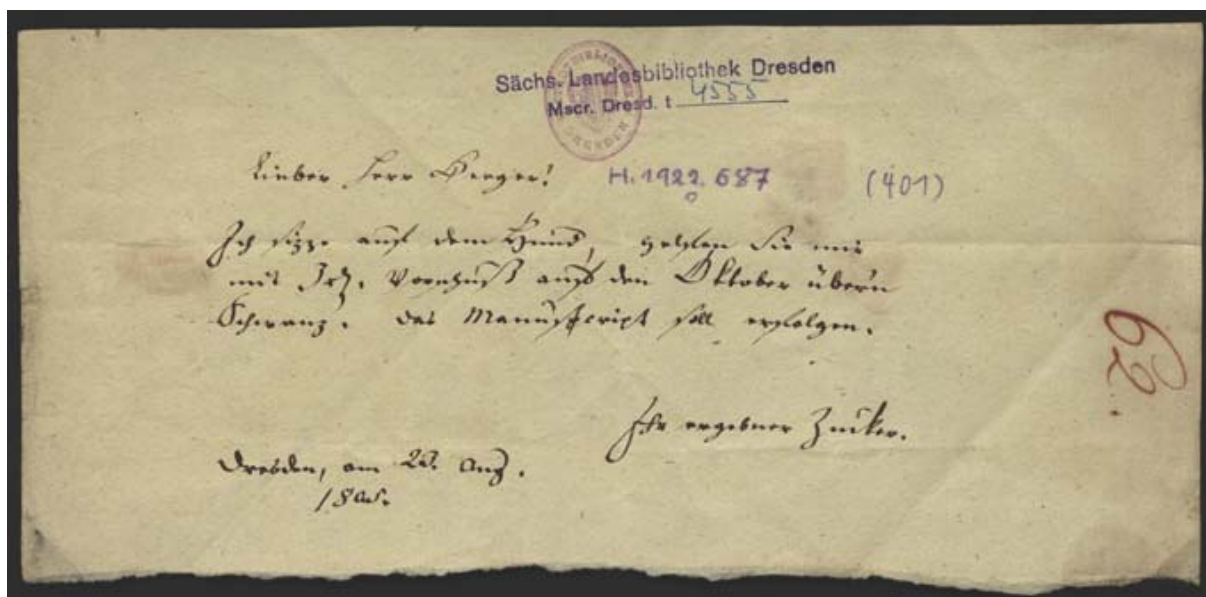 Sächs. Landesbibliothek Dresden
Mscr. Dresd. t 4555
Lieber Herr
H. 1922. 687 (401)
Ich sizze auf dem Hund, helfen Sie mir
mit Vorschuß auf den Oktober übern
Schwanz. Das Manuscript soll erfolgen.
62.
Ihr ergebner
Dresden, am Aug.